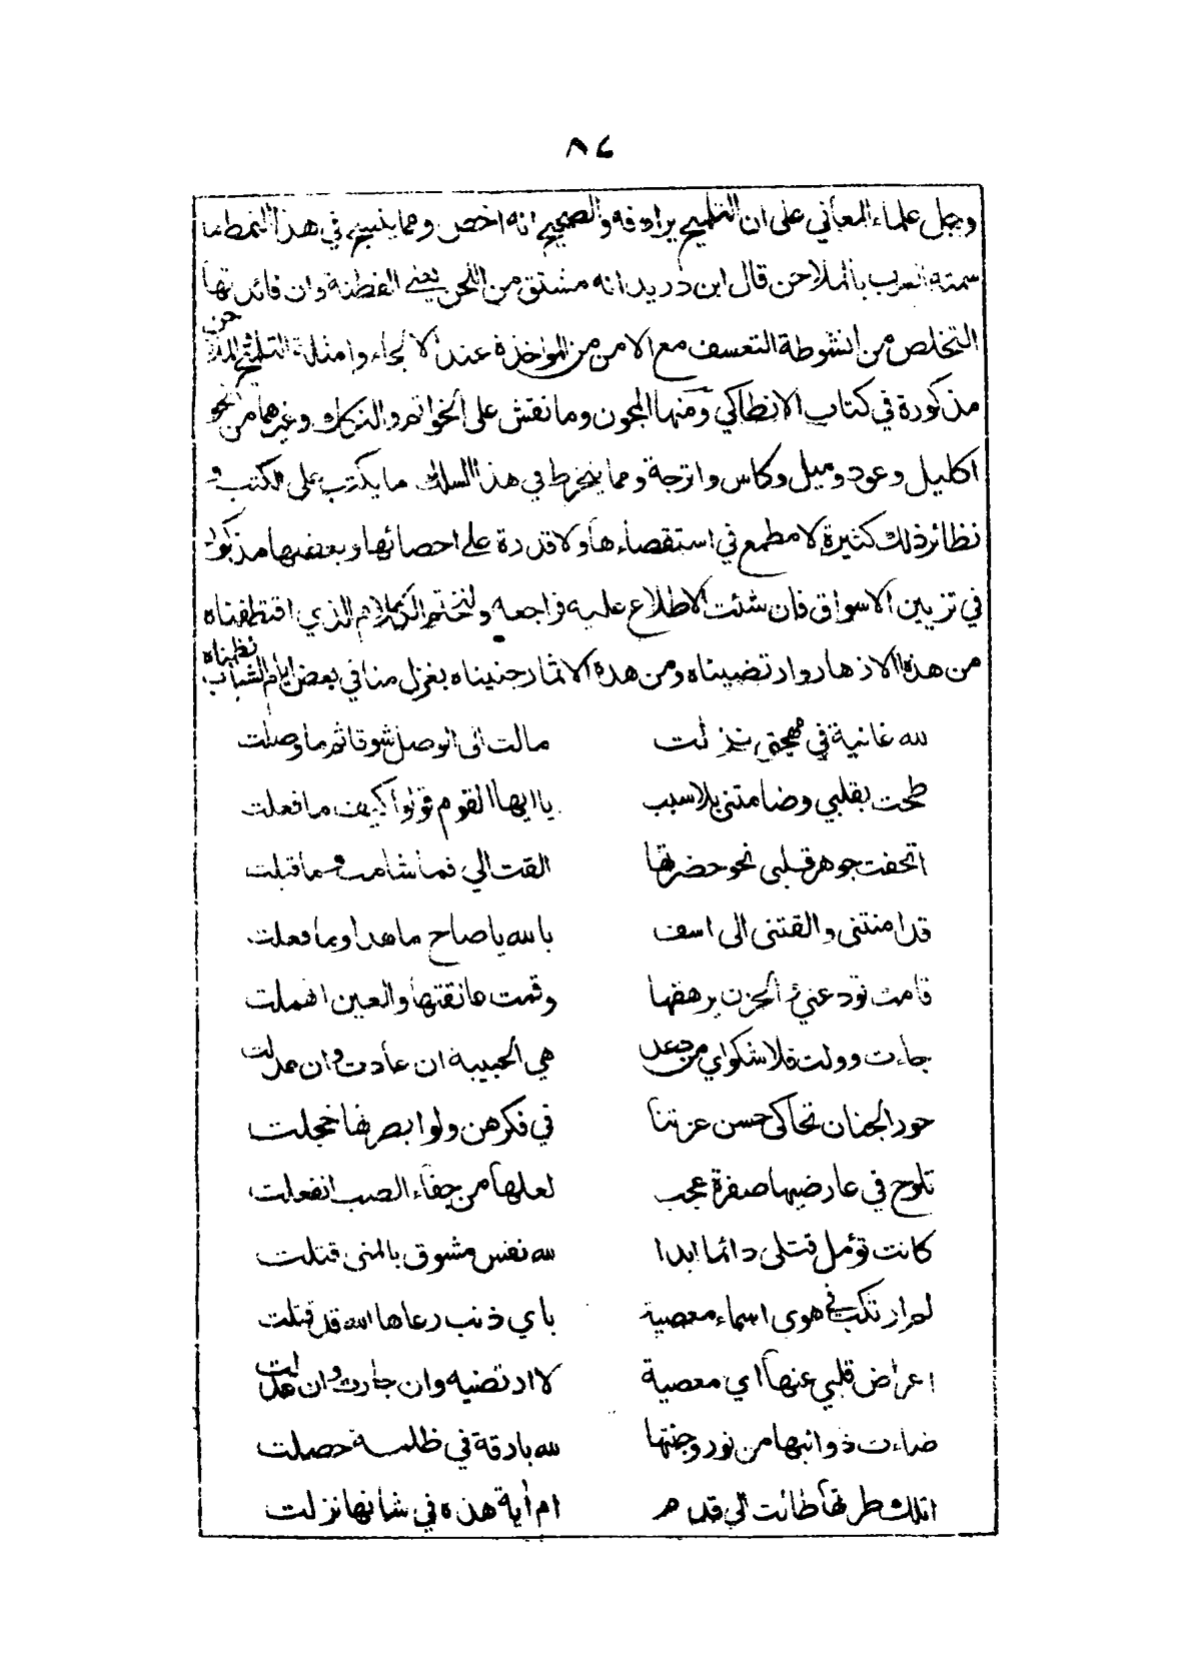 ٨٤
وجل علماء المعاني على ان التلميح يرادفه والصحيح انه اخص ومما ينسج في هذا النمط ما
سمته العرب بالملاحن قال ابن دريد انه مشتق من اللحن يعني الفطنة وان فائدتها
التخلص من انشوطة التعسف مع الامن من المواخذة عند الالجاء وامثلة
مذكورة في كتاب الانطاكي ومنها المجون وما نقش على الخواتم و وغيرهما من نحو
اكليل وعود وميل وكاس واترجة ومما ينخرط في هذا السلك ما يكتب على المكتب و
نظائر ذلك كثيرة لا مطمع في استقصاءها ولا قدرة على احصائها وبعضها مذكور
في تزيين الاسواق فان شئت الاطلاع عليه فراجعه ولنختم الكلام الذي اقتطفناه
من هذه الازهار وارتضيناه ومن هذه الاثمار جنيناه بغزل منا في بعض ايام الشباب نظمناه
لله غانية في مهجتي نزلت مالت الى الوصل شوقا ثم ما وصلت
طحت بقلبي وضامتني بلا سبب يا ايها القوم قولوا كيف ما فعلت
اتحفت جوهر قلبي نحو حضرتها القت الي فما شامت وما قبلت
قد امنتني والقتني الى اسف بالله يا صاح ما هذا وما فعلت
قامت تودعني الحزن يرهقها وقمت عانقتها والعين اهملت
جاءت وولت فلا شكواي من دعد هي الحبيبة ان عادت وان عدلت
حور الجنان تحاكي حسن عزتنا في فكرهن ولو ابصرنها خجلت
تلوح في عارضيها صفرة عجب لعلها من جفاء الصب انفعلت
كانت تؤمل قتلي دائما ابدا لله نفس مشوق بالمنى قتلت
لم ارتكب في هوى اسماء معصية باي ذنب رعاها الله قد قتلت
اعراض قلبي عنها اي معصية لا ارتضيه وان جارت وان عدلت
ضاءت ذوائبها من نور وجنتها لله بارقة في ظلمة حصلت
اتلك طرتها طالت الى قدم ام اية هذه في شانها نزلت